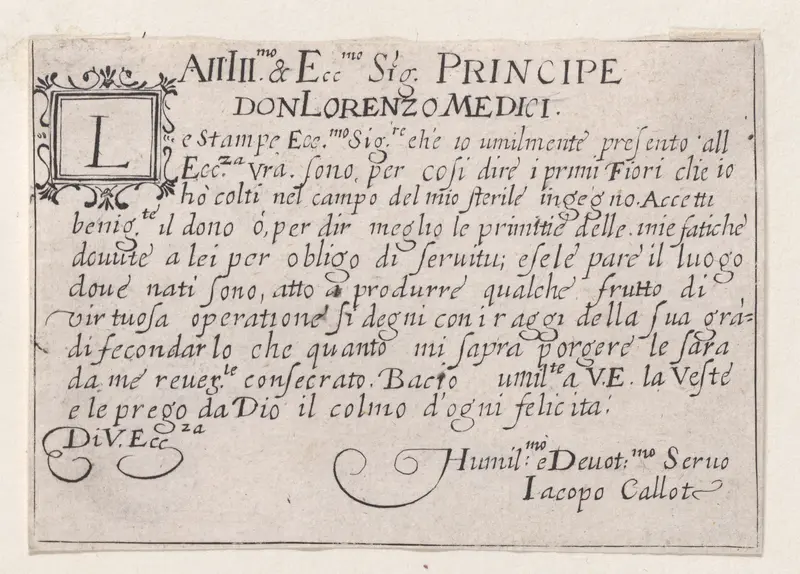 All Ill.mo & Ecc.mo Sig. PRINCIPE
DON LORENZO MEDICI.
Le Stampe Ecc.mo Sig.re che io umilmente presento all
Ecc.za Vra. sono, per cosi dire i primi Fiori che io
hò colti nel campo del mio sterile ingegno. Accetti
benig.te il dono ó, per dir meglio le primitie delle mie fatiche
douute a lei per obligo di seruitu; e se le pare il luogo
doue nati sono, atto a produrre qualche frutto di
virtuosa operatione si degni con i raggi della sua grá-
di fecondarlo che quanto mi sapra porgere le sara
da me reuer.te consecrato. Bacio umil.te a V.E. la Veste
e le prego da Dio il colmo d'ogni felicita.
Di V. Ecc.za
Humil.mo è Deuot.mo Seruo
Iacopo Callot